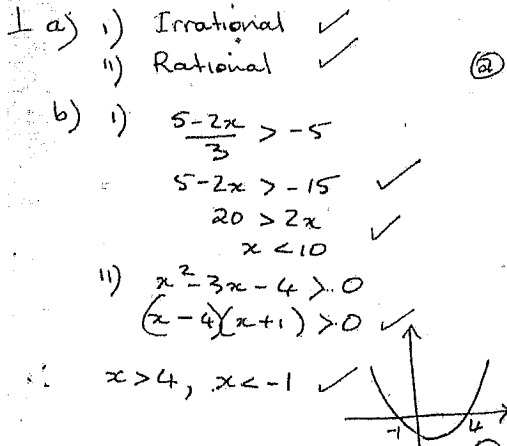 1 a) i) Irrational ✓
ii) Rational ✓ ②
b) i) (5-2x)/3 > -5
5-2x > -15 ✓
20 > 2x ✓
x < 10
ii) x² - 3x - 4 > 0
(x-4)(x+1) > 0 ✓
x > 4, x < -1 ✓
-1 4